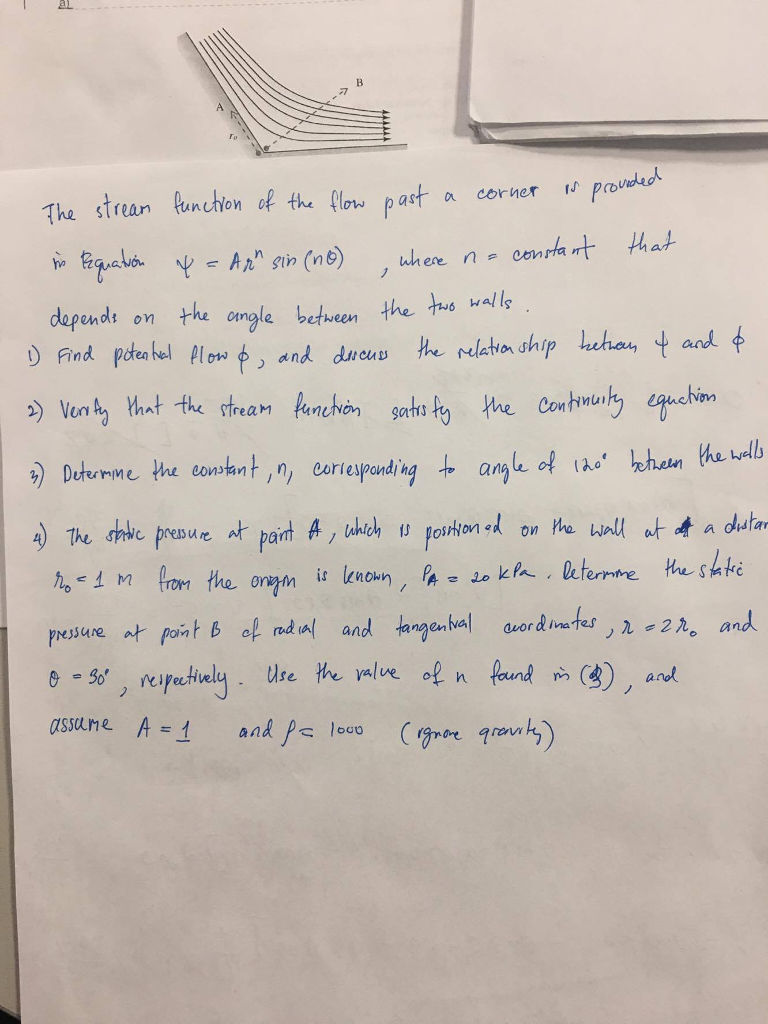 a)
A
B
r₀
The stream function of the flow past a corner is provided
in Equation ψ = Arⁿ sin (nθ) , where n = constant that
depends on the angle between the two walls.
1) Find potential flow ϕ, and discuss the relationship between ψ and ϕ
2) Verify that the stream function satisfy the continuity equation
3) Determine the constant, n, corresponding to angle of 120° between the walls
4) The static pressure at point A, which is positioned on the wall at a distan
r₀ = 1 m from the origin is known, PA = 20 kPa. Determine the static
pressure at point B of radial and tangential coordinates, r = 2r₀ and
θ = 30°, respectively. Use the value of n found in (3), and
assume A = 1 and ρ = 1000 (ignore gravity)